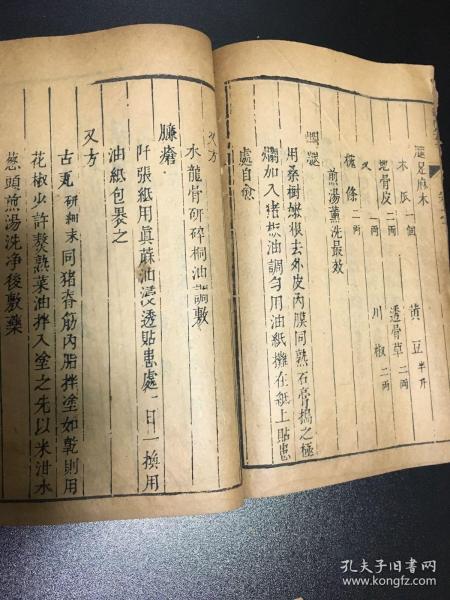 足麻木
木瓜 一個 黄豆 半斤
地骨皮 二両 透骨草 二両
艾 一両 川椒 二両
條 二両
煎湯薰洗最效
用桑樹嫩根去外皮內膜同熟石膏搗之極
爛加入猪板油調勻用油紙攤在紙上貼患
處自愈
又方
水龍骨研碎桐油調敷
臁瘡
阡張紙用眞蔴油浸透貼患處一日一換用
油紙包裹之
又方
古瓦研細末同猪脊筋內脂拌塗如乾則用
花椒少許熬熟菜油拌入塗之先以米泔水
葱頭煎湯洗净後敷藥
孔夫子旧書网
www.kongfz.com